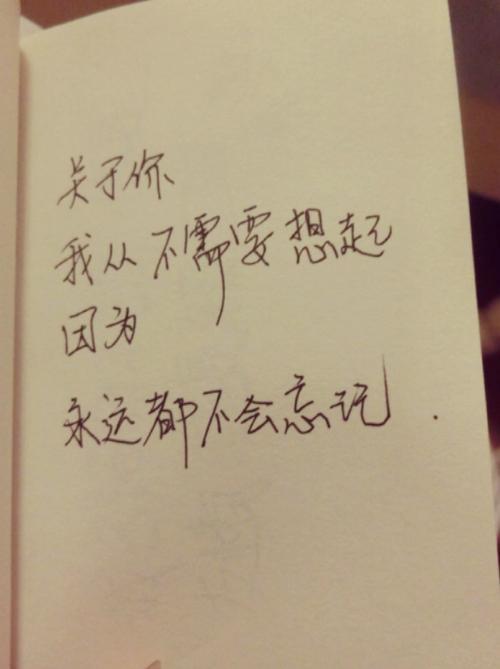 关于你
我从不需要想起
因为
永远都不会忘记.